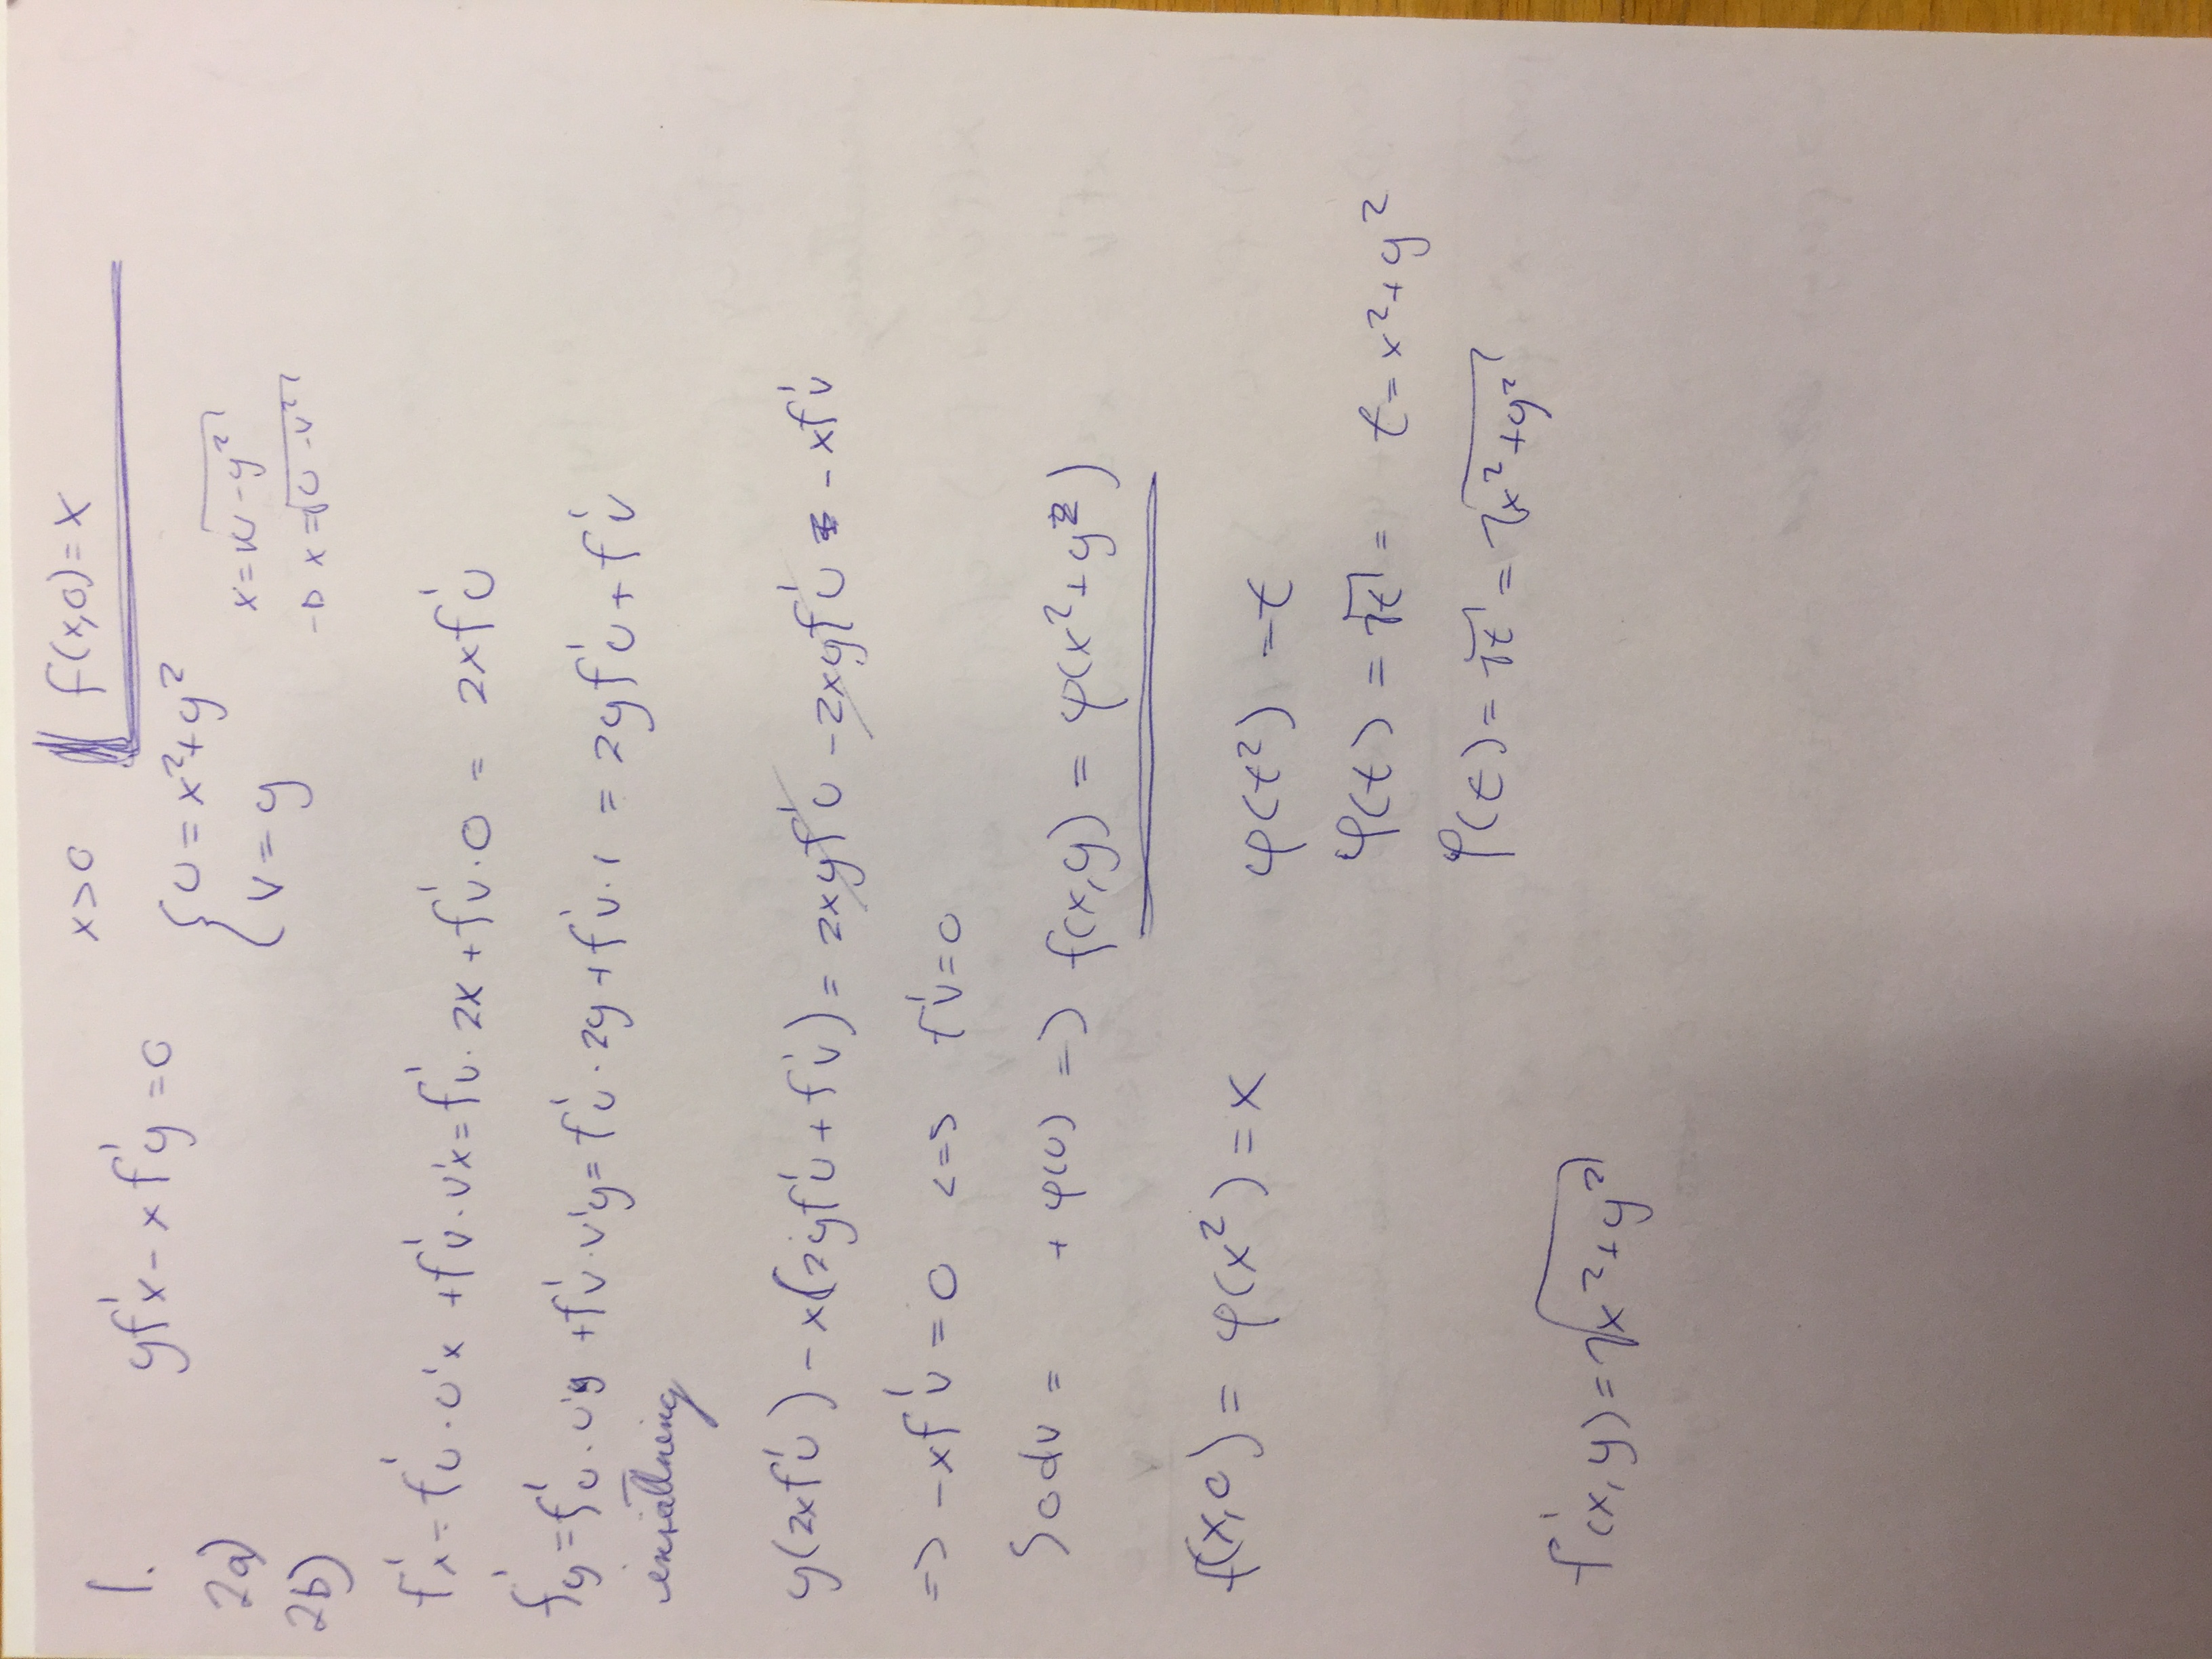 x>0 f(x,0)=x
1. yf'x - xf'y = 0
{ u = x²+y²
2a) x = √u-y²
v = y
2b) → x = √u-v²
f'x = f'u · u'x + f'v · v'x = f'u · 2x + f'v · 0 = 2xf'u
f'y = f'u · u'y + f'v · v'y = f'u · 2y + f'v · 1 = 2yf'u + f'v
insättning
y(2xf'u) - x(2yf'u + f'v) = 2xyf'u - 2xyf'u - xf'v
=> -xf'v = 0 <=> f'v = 0
∫0dv = + φ(u) => f(x,y) = φ(x²+y²)
f(x,0) = φ(x²) = x
φ(t²) = t
φ(t) = √t = t = x²+y²
φ(t) = √t = √x²+y²
f'(x,y) = √x²+y²